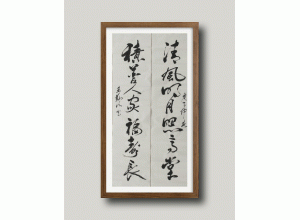 清風明月照高堂
積善人家福壽長